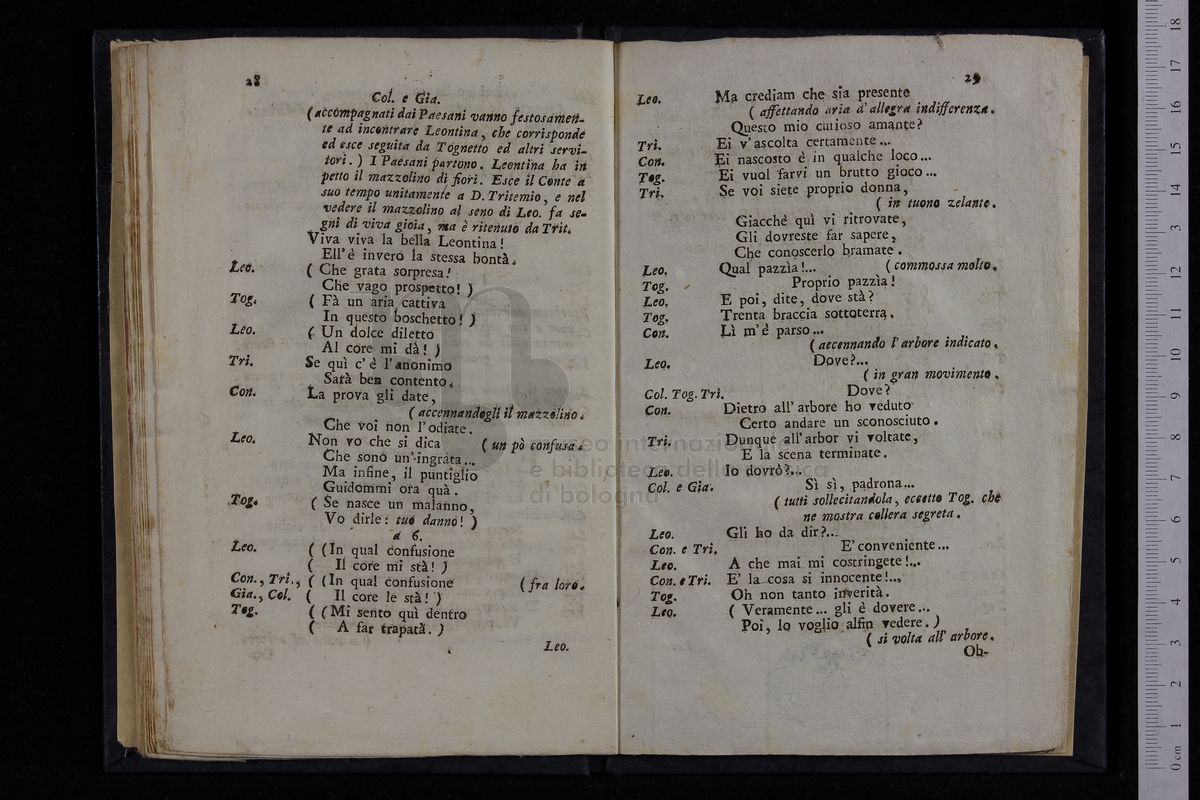 28
Col. e Gia.
(accompagnati dai Paesani vanno festosamen-
te ad incontrare Leontina, che corrisponde
ed esce seguita da Tognetto ed altri servi-
tori.) I Paesani partono. Leontina ha in
petto il mazzolino di fiori. Esce il Conte a
suo tempo unitamente a D. Tritemio, e nel
vedere il mazzolino al seno di Leo. fa se-
gni di viva gioia, ma è ritenuto da Trit.
Viva viva la bella Leontina!
Ell'è invero la stessa bontà.
Leo. ( Che grata sorpresa!
Che vago prospetto! )
Tog. ( Fà un aria cattiva
In questo boschetto! )
Leo. ( Un dolce diletto
Al core mi dà! )
Tri. Se quì c'è l'anonimo
Sarà ben contento.
Con. La prova gli date,
( accennandogli il mazzolino.
Che voi non l'odiate.
Leo. Non vo che si dica ( un pò confusa.
Che sono un'ingrata...
Ma infine, il puntiglio
Guidommi ora quà.
Tog. ( Se nasce un malanno,
Vo dirle: tuo danno! )
a 6.
Leo. ( (In qual confusione
( Il core mi stà! )
Con., Tri., ( (In qual confusione ( fra loro.
Gia., Col. ( Il core le stà! )
Tog. ( (Mi sento quì dentro
( A far trapatà. )
Leo.
29
Leo. Ma crediam che sia presente
( affettando aria d'allegra indifferenza.
Questo mio curioso amante?
Tri. Ei v'ascolta certamente...
Con. Ei nascosto è in qualche loco...
Tog. Ei vuol farvi un brutto gioco...
Tri. Se voi siete proprio donna,
( in tuono zelante.
Giacchè quì vi ritrovate,
Gli dovreste far sapere,
Che conoscerlo bramate.
Leo. Qual pazzìa!... ( commossa molto.
Tog. Proprio pazzìa!
Leo. E poi, dite, dove stà?
Tog. Trenta braccia sottoterra.
Con. Lì m'è parso...
( accennando l'arbore indicato.
Leo. Dove?...
( in gran movimento.
Col. Tog. Tri. Dove?
Con. Dietro all'arbore ho veduto
Certo andare un sconosciuto.
Tri. Dunque all'arbor vi voltate,
E la scena terminate.
Leo. Io dovrò?...
Col. e Gia. Sì sì, padrona...
( tutti sollecitandola, eccetto Tog. che
ne mostra collera segreta.
Leo. Gli ho da dir?...
Con. e Tri. E' conveniente...
Leo. A che mai mi costringete!...
Con. e Tri. E' la cosa sì innocente!...
Tog. Oh non tanto inverità.
Leo. ( Veramente... gli è dovere...
Poi, lo voglio alfin vedere. )
( si volta all'arbore.
Oh-
museo internazionale
e biblioteca della musica
di bologna
0 cm 1 2 3 4 5 6 7 8 9 10 11 12 13 14 15 16 17 18